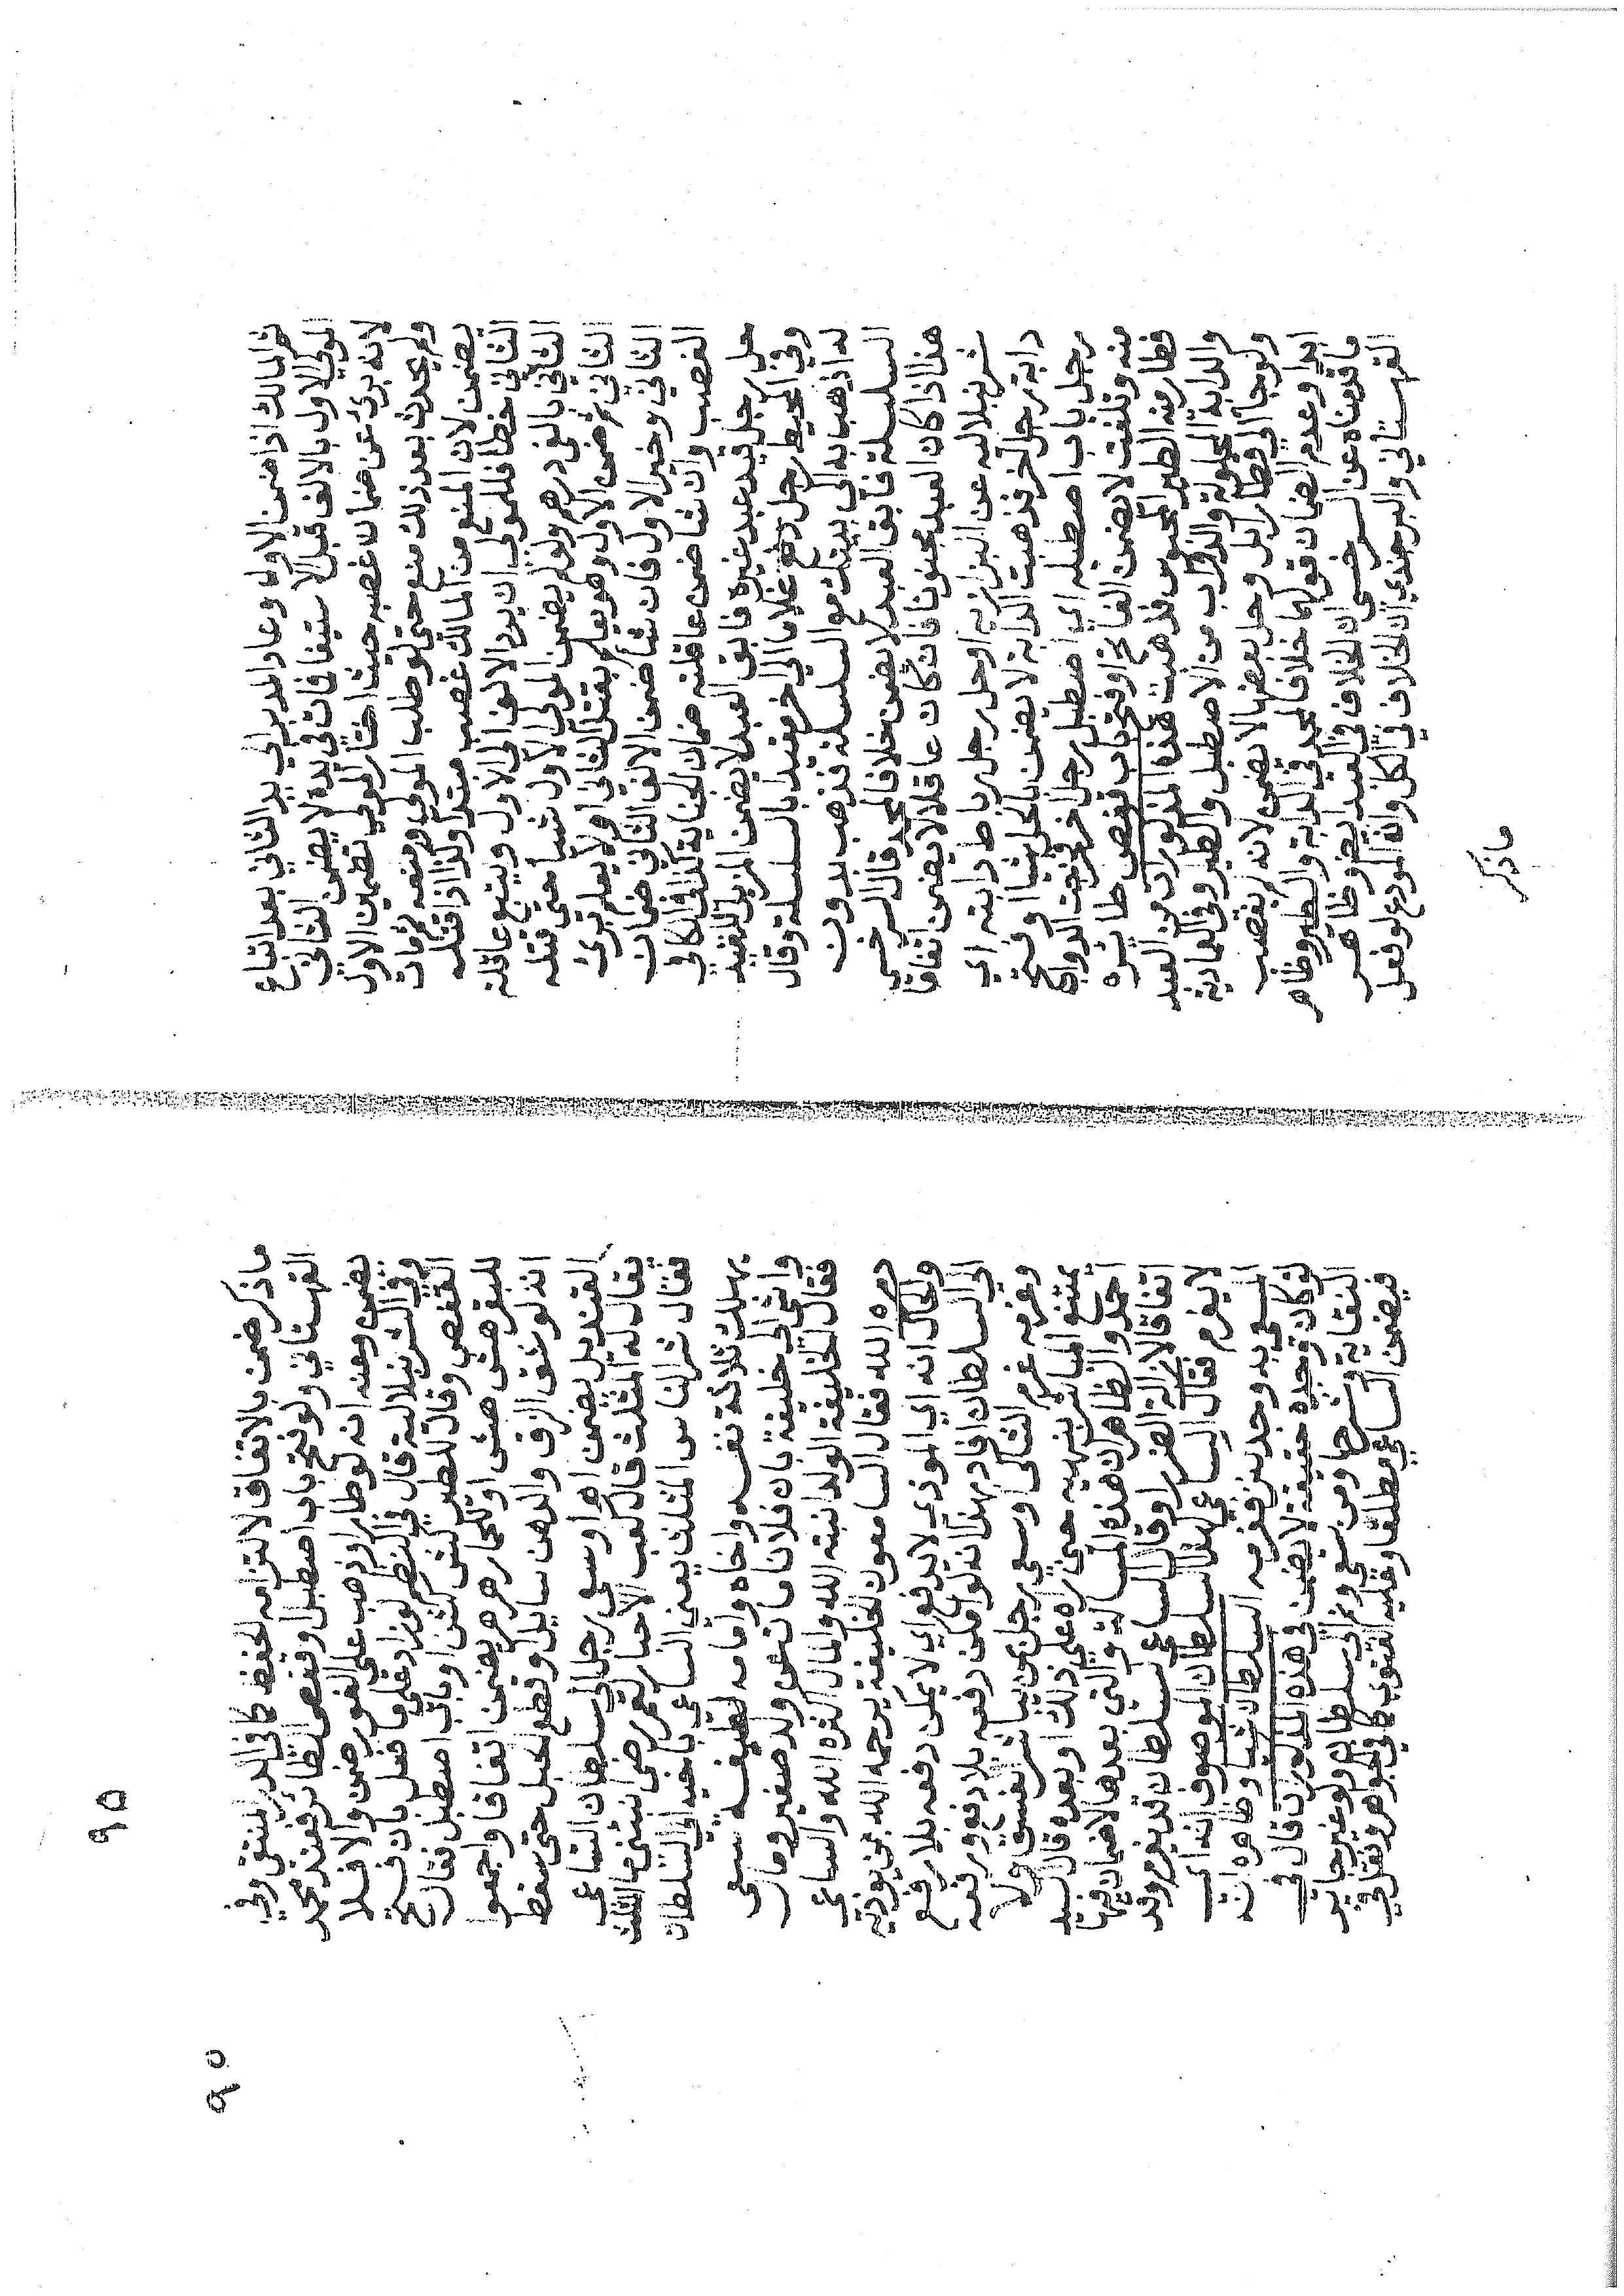 ثم المالك اذا ضمن الاول وعاد المدبر الي يد الثاني بعد اتباع
المولي الاول بالالف قبل الاستيفا فمات في يده لا يضمن الثاني
لانه بري عن ضمان غصبه حيث اختار المولي تضمين الاول
ولم يحدث بعد ذلك منع حتي لو طلب المولي ومنعه ثم مات
يضمن لان المنع من المالك غصب مبتدا وكذا اذا قتله
الثاني خطا فللمولي ان يرد الالف الى الاول ويتبع عاقلة
الثاني بالف درهم ولو لم يضمن المولي الاول شيا حتي قتله
الثاني ثم ضمن الاول وهو يعلم بقتل الثاني او لا يعلم تبرئ
الثاني وخير الاول فان شا ضمن الالف الثاني ضمان
الغصب وان شا ضمن عاقلته ضمان الجناية كذا في الكافي
حل رجل قيد عبد غيره فابق العبد لا يضمن المزيل للقيد
وفي المحيط رجل دفع غلاما الي اخر مقيدا بالسلسلة وقال
له اذهب به الي بيتك مع السلسلة فذهب بدون
السلسلة فابق العبد لا يضمن خلافا لمحمد قال السرخسي
هذا اذا كان العبد مجنونا فان كان عاقلا لا يضمن اتفاقا
شرنبلاليه عن البزازيه او حل رجل رباط دابته اي
دابة رجل اخر فذهبت الدابة لا يضمن بالحل شيا او فتح
رجل باب اصطبله اي اصطبل رجل اخر فخرجت الدواب
منه وتلفت لا يضمن الفاتح او فتح باب قفص طايره
فطار منه الطير المحبوس فذهبت هذه المذكورات من العبد
والدابة المحلولة والدواب من الاصطبل والطير وفي العمادية
ولو جا الي قطار ابل وحل بعضها لا يضمن لانه لم يغصب
ابلا وعدم الضمان قولهما خلافا لمحمد في الدابة والطير وظاهر
ما قدمناه عن السرخسي ان الخلاف في العبد ايضو ظاهر
القهستاني والبرجندي ان الخلاف في الكل وان المودع لو فعل
ماذكر
ماذكر ضمن بالاتفاق لالتزامه الحفظ كما في الدر المنتقى وفي
القهستاني ولو فتح باب اصطبل او قفص الطائر فعند محمد
يضمن وعنه انه لو طار او ذهب علي الفور ضمن والا فلا
وفي الشرنبلالية قال في النظم لو زاد علي ما فعل بان فتح
القفص وقال للطير كش كش او باب اصطبل فقال
للبقر هش هش او للحمار هر هر يضمن اتفاقا واجمعوا
انه لو شق الزق والدهن سايل او قطع الحبل حتي سقط
القنديل يضمن اهـ او سعى رجل الي سلطان الساعي
يقال له المثلث قال كعب الاحبار لعمر رضي انبئني ما المثلث
فقال شر الناس المثلث يعني الساعي باخيه الي السلطان
يهلك ثلاثة نفسه واخاه وامامه لطيفة سعى
واشي الي خليفة بان فلانا مات عن ولد صغير ومال
فقال الخليفة الولد انبته الله والمال كثره الله والساعي
دمره الله فقال السامعون الخليفة يرحمه الله بمن يوذيه
والحال انه اي الموذي لا يدفع اي لا يمكن دفعه بلا رفع
الي السلطان افاد بهذا انه لو امكن دفعه بلا دفع ورفعه
وغرمه غرم الشاكي او سعي رجل بمن يباشر الفسق ولا
يمتنع المباشر بنهيه حتي راه علي ذلك او بعده قال السيد
احمد والظاهر ان هذه المسالة والتي بعدها لا ضمان فيها
اتفاقا لازالة الضرر او قال الساعي لسلطان قد يغرم وقد
لا يغرم فقال الساعي لهذا السلطان الموصوف انه اي
المسعي به وجد كنز فغرمه السلطان شيا وظاهره ان
لو كان وجده حقيقة لا يضمن في هذه المذكورات قال في
النقاية وشرحها ومن سعي بغير الي سلطان ولو غير جاير
فيضمن الساعي مطلقا وعليه الفتوي كما في الجواهر ونقل في
٩٥
٩٥